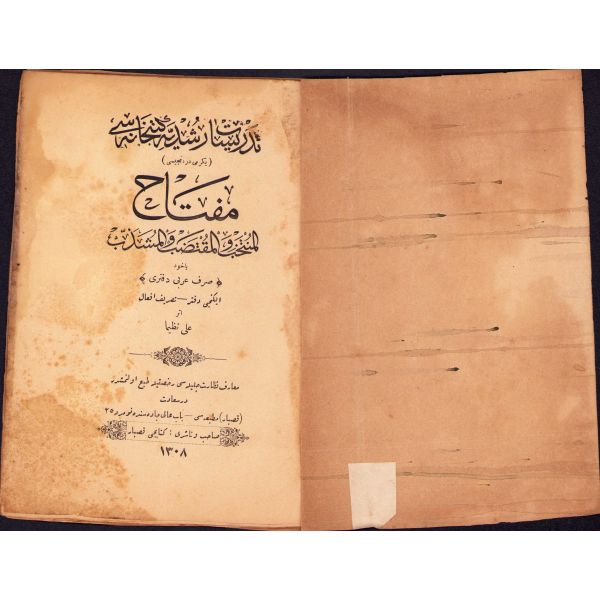 تدريسات رشديه كتبخانه سى
(يكرمى دردنجيسى)
مفتاح
المنتخب والمقتضب والمشذب
ياخود
﴿ صرف عربى دفترى ﴾
ايكنجى دفتر — تصريف افعال
اثر
على نظيما
معارف نظارت جليله سى رخصتيله طبع اولنمشدر
درسعادت
(قصبار) مطبعه سى — باب عالى جاده سنده نومرو ٢٥
صاحب وناشرى : كتابجى قصبار
١٣٠٨